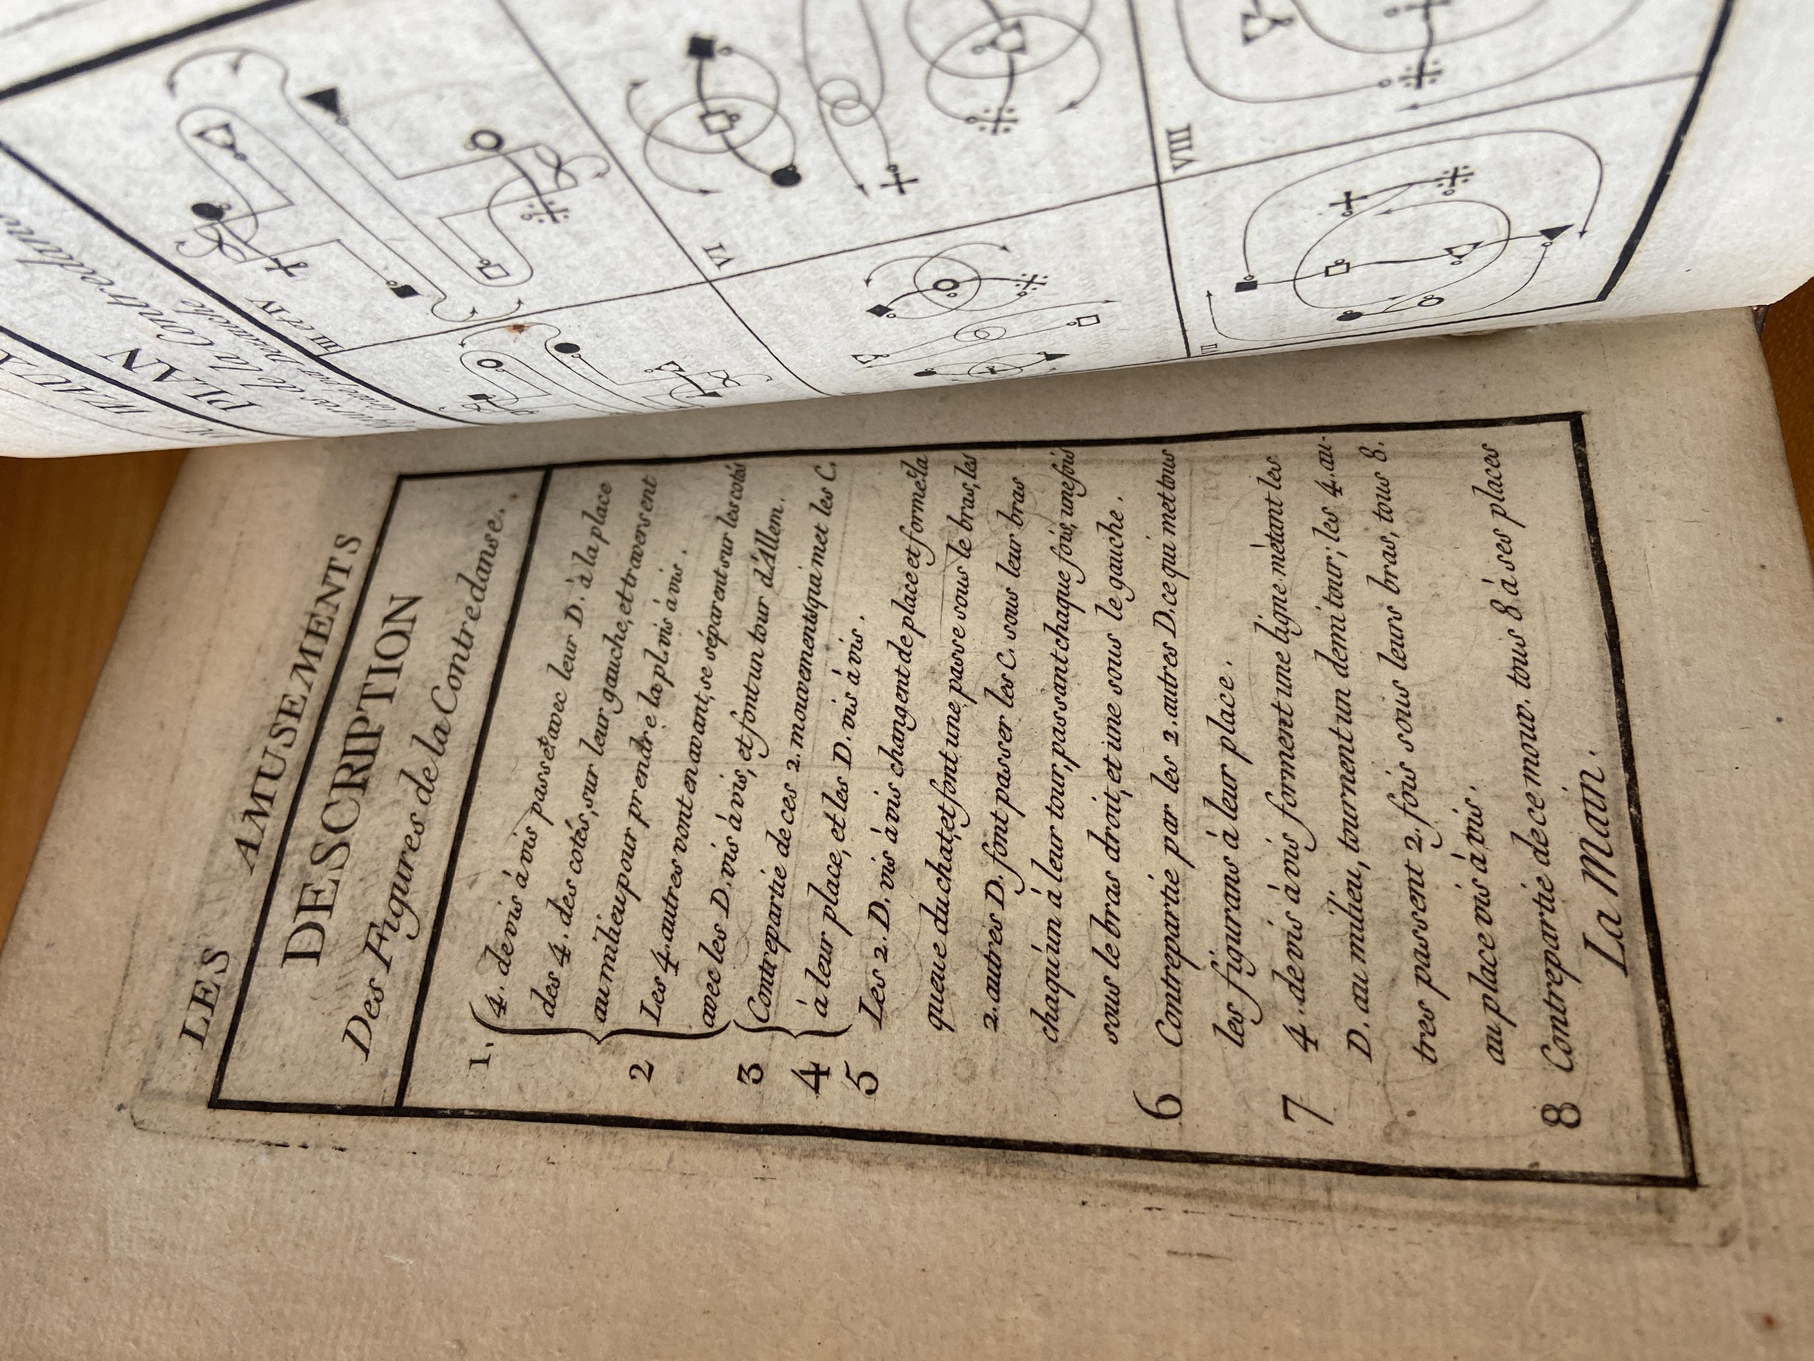 LES AMUSEMENTS
DESCRIPTION
Des Figures de la Contredanse.
1. 4. de vis à vis passet avec leur D. à la place
des 4. des cotés, sur leur gauche, et traversent
au milieu pour prendre la pl. vis à vis.
2 Les 4. autres vont en avant, se séparent sur les cotés
avec les D. vis à vis, et font un tour d'Allem.
3 Contrepartie de ces 2. mouvements qui met les C.
4 à leur place, et les D. vis à vis.
5 Les 2. D. vis à vis changent de place et forme. la
queue du chat, et font une passe sous le bras, les
2. autres D. font passer les C. sous leur bras
chaqu'un à leur tour, passant chaque fois, une fois
sous le bras droit, et une sous le gauche.
6 Contrepartie par les 2. autres D. ce qui met tous
les figurans à leur place.
7 4. de vis à vis forment une ligne métant les
D. au milieu, tournent un demi tour; les 4. au-
tres passent 2. fois sous leurs bras, tous 8.
au place vis à vis.
8 Contrepartie de ce mouv. tous 8 à ses places
La Main.
PLAN
de la Contredanse
III et IV
VI
VIII